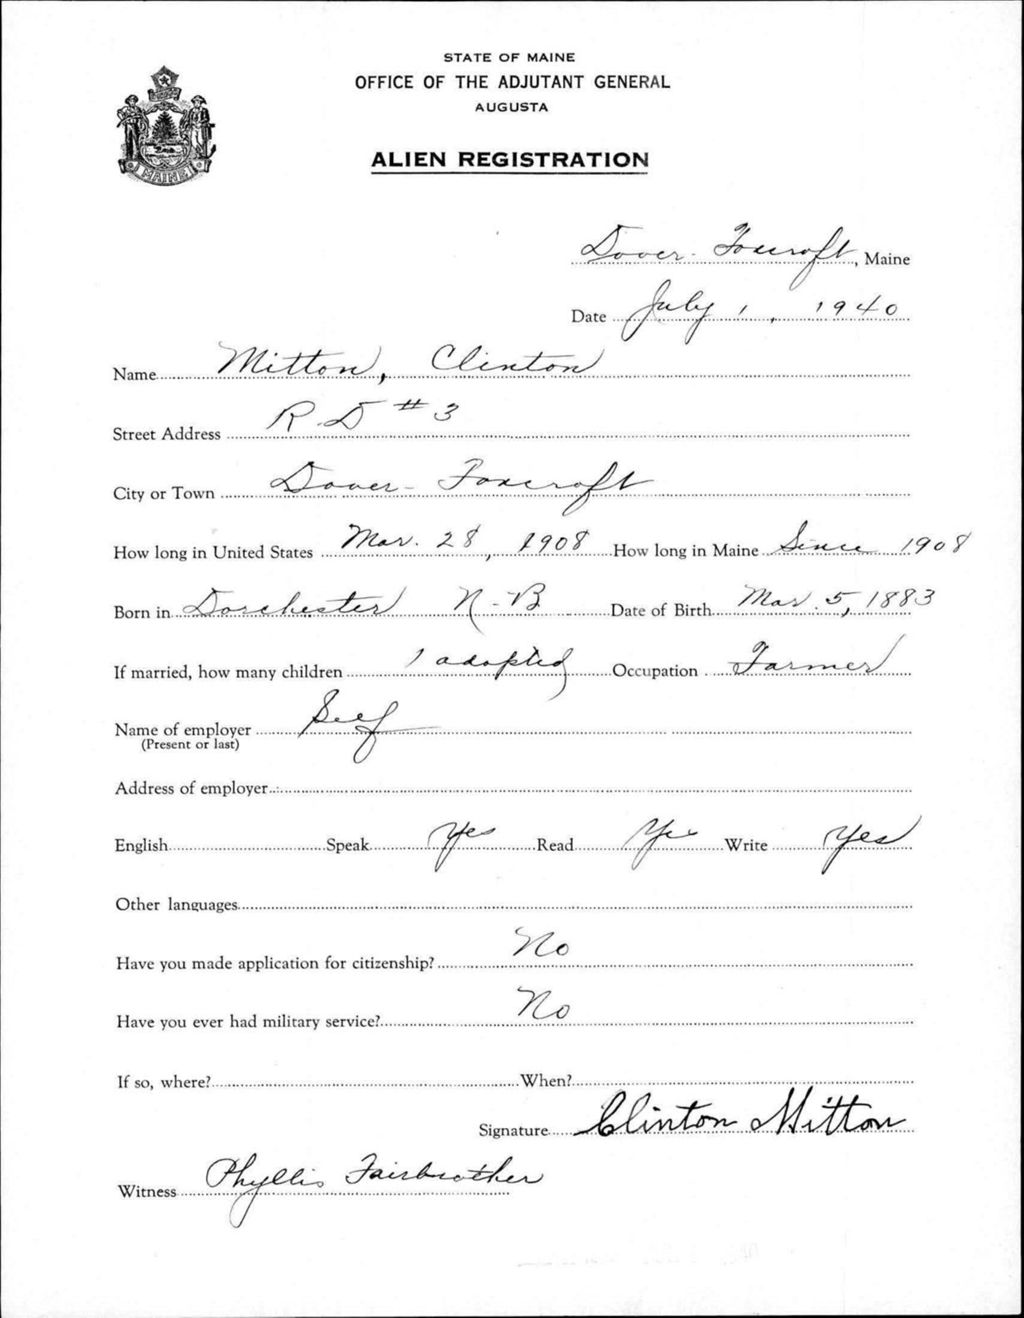 STATE OF MAINE
OFFICE OF THE ADJUTANT GENERAL
AUGUSTA
ALIEN REGISTRATION
MAINE
Dover-Foxcroft, Maine
Date July 1, 1940
Name Mitton, Clinton
Street Address R.D #3
City or Town Dover-Foxcroft
How long in United States Mar. 28, 1908 How long in Maine Since 1908
Born in Dorchester N-B Date of Birth Mar. 5, 1883
If married, how many children 1 adopted Occupation Farmer
Name of employer Self
(Present or last)
Address of employer
English Speak Yes Read Yes Write Yes
Other languages
Have you made application for citizenship? No
Have you ever had military service? No
If so, where? When?
Signature Clinton Mitton
Witness Phyllis Fairbrother